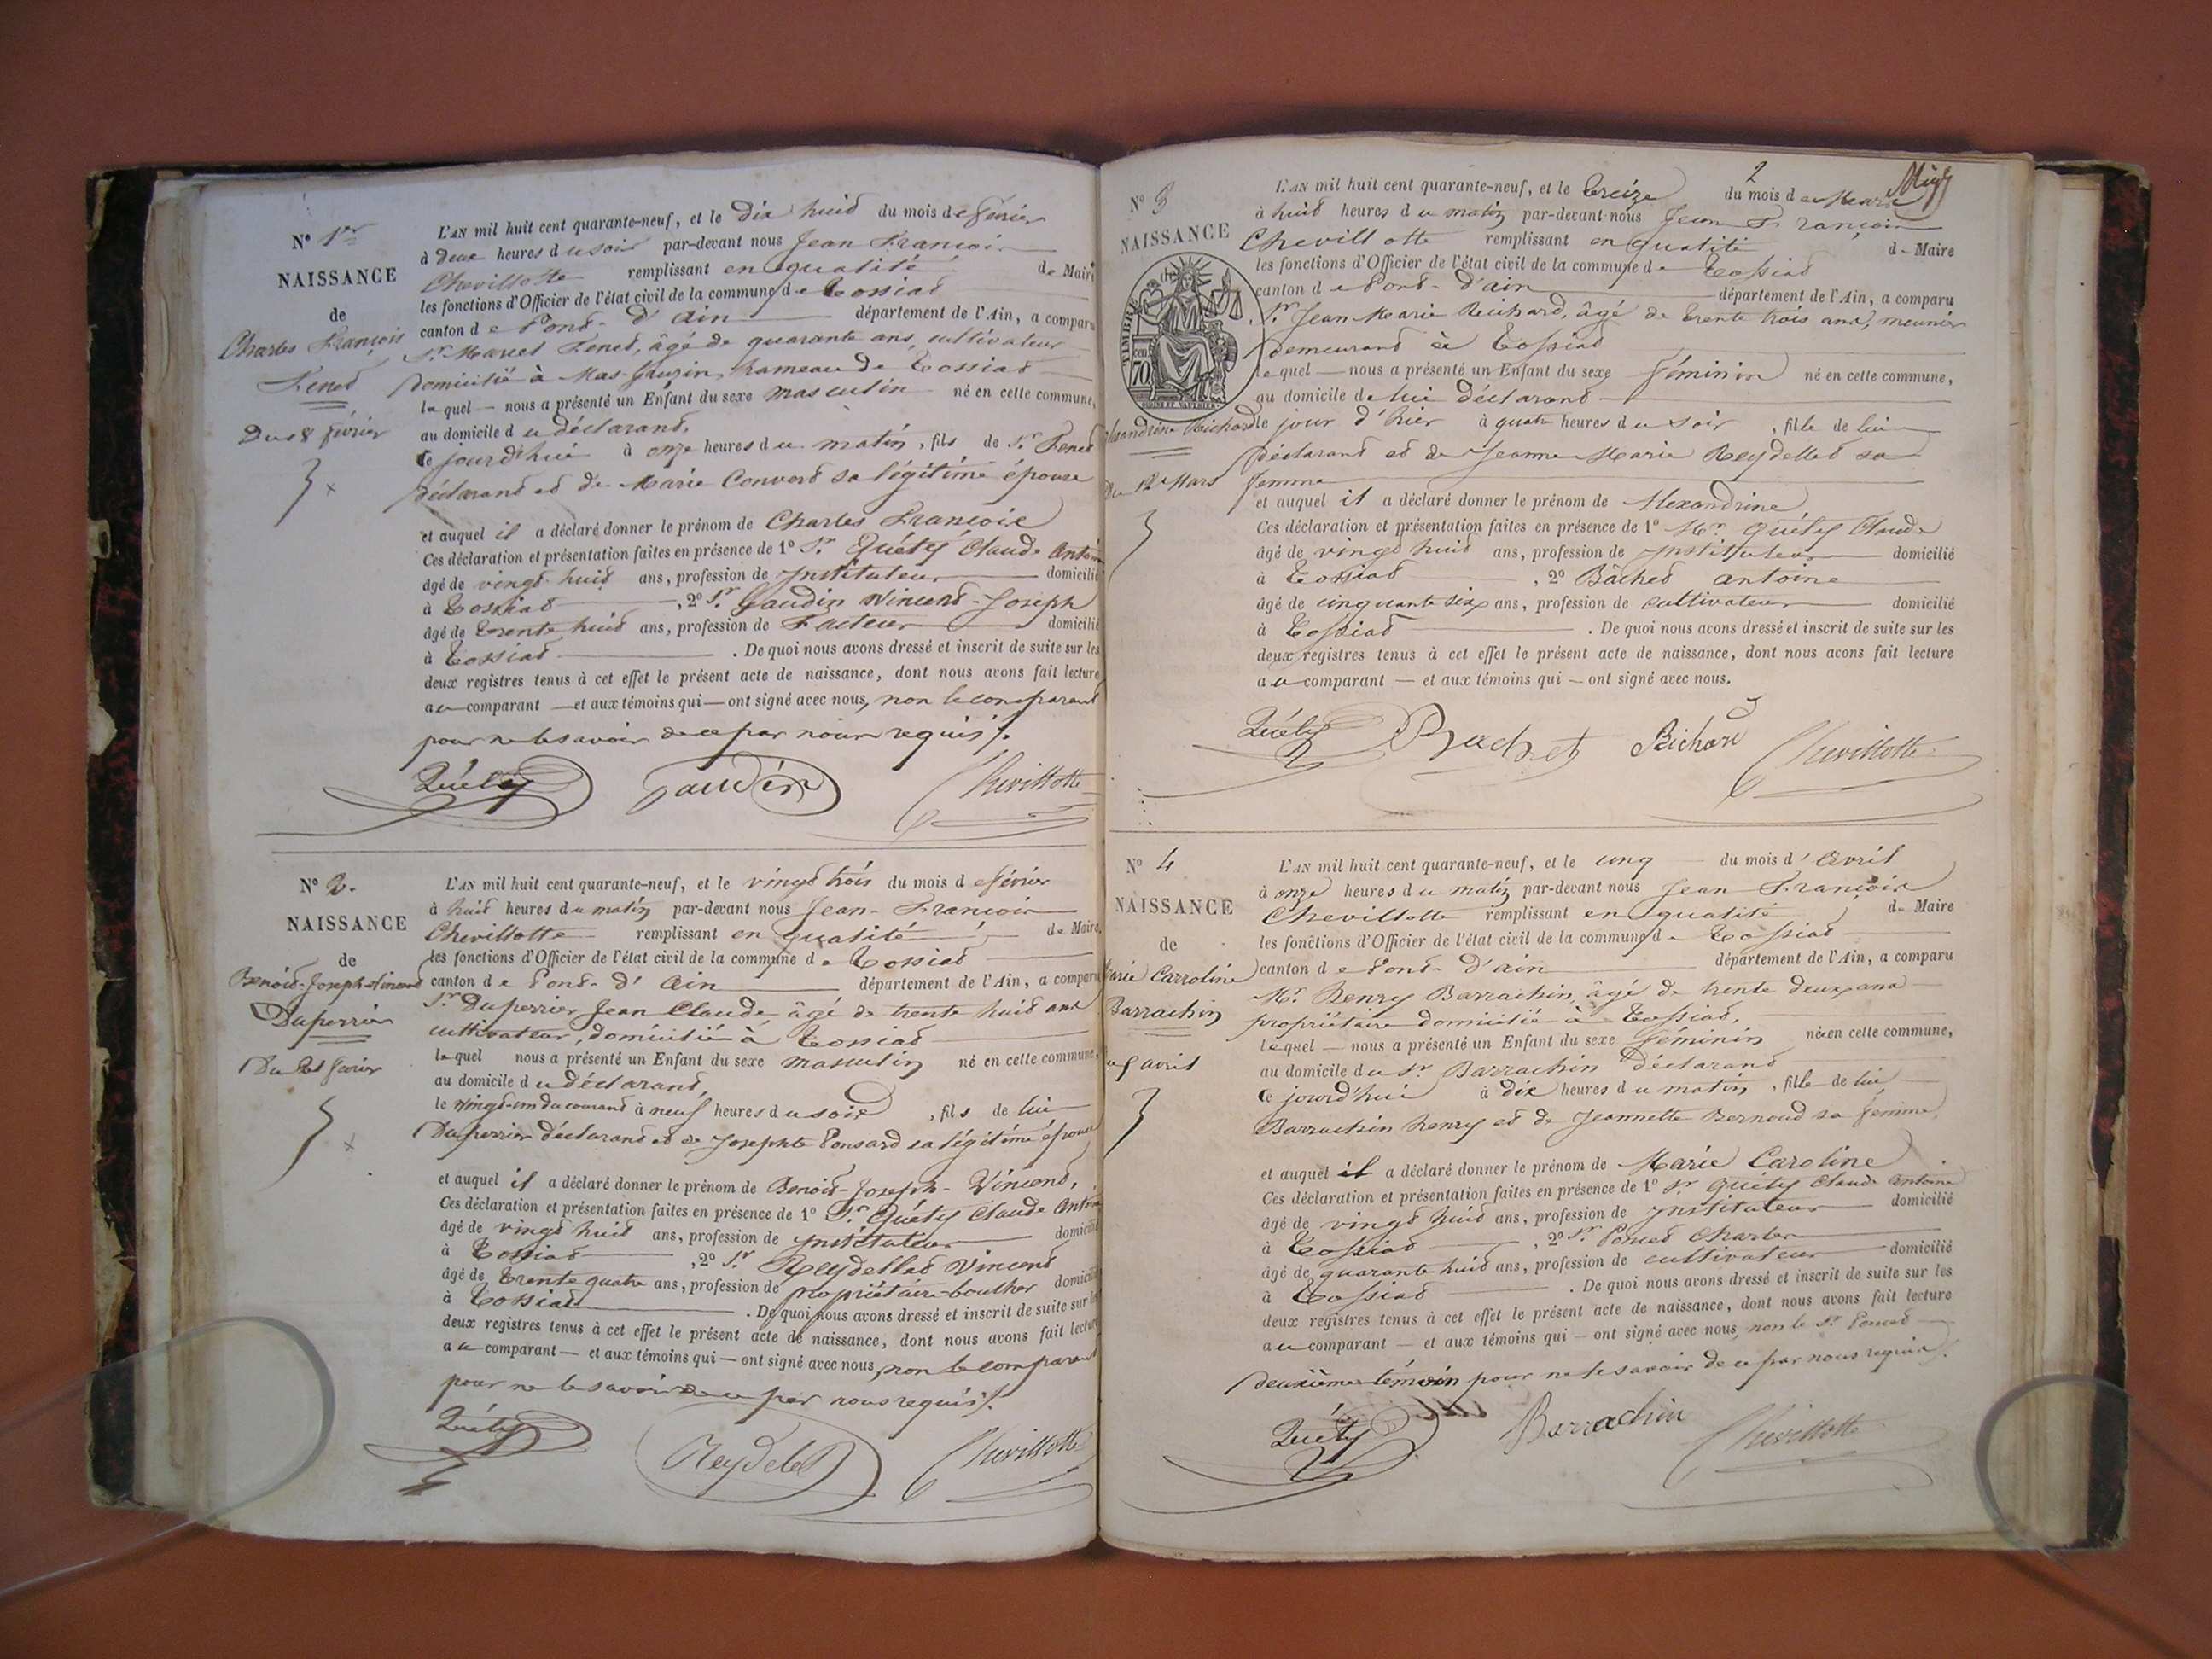 N° 1er
NAISSANCE
de
Charles François
Fenet
Du 18 février
L'AN mil huit cent quarante-neuf, et le dix huit du mois de février
à deux heures du soir par-devant nous Jean François
Chevillotte remplissant en qualité de Maire
les fonctions d'Officier de l'état civil de la commune de Tossiat
canton de Pont-d'ain département de l'Ain, a comparu
Sr. Marcel Fenet, âgé de quarante ans, cultivateur
domicilié à Mas hameau de Tossiat
lequel nous a présenté un Enfant du sexe masculin né en cette commune,
au domicile du déclarant,
ce jourd'hui à onze heures du matin, fils de Sr. Fenet
déclarant et de Marie Convert sa légitime épouse
et auquel il a déclaré donner le prénom de Charles François
Ces déclaration et présentation faites en présence de 1° Sr. Quéty Claude Antoine
âgé de vingt huit ans, profession de Instituteur domicilié
à Tossiat, 2° Sr Gaudin Vincent-Joseph
âgé de trente huit ans, profession de Facteur domicilié
à Tossiat. De quoi nous avons dressé et inscrit de suite sur les
deux registres tenus à cet effet le présent acte de naissance, dont nous avons fait lecture
au comparant et aux témoins qui ont signé avec nous, non le comparant
pour ne le savoir de ce par nous requis.
Quéty Gaudin Chevillotte
N° 2.
NAISSANCE
de
Benoit-Joseph-Vincent
Duperrier
Du 21 février
L'AN mil huit cent quarante-neuf, et le vingt trois du mois de février
à huit heures du matin par-devant nous Jean-François
Chevillotte remplissant en qualité de Maire
les fonctions d'Officier de l'état civil de la commune de Tossiat
canton de Pont-d'Ain département de l'Ain, a comparu
Sr. Duperrier Jean Claude âgé de trente huit ans
cultivateur, domicilié à Tossiat
lequel nous a présenté un Enfant du sexe masculin né en cette commune,
au domicile du déclarant,
le vingt-un du courant à neuf heures du soir, fils de lui
Duperrier déclarant et de Josephte Ponsard sa légitime épouse
et auquel il a déclaré donner le prénom de Benoit-Joseph-Vincent,
Ces déclaration et présentation faites en présence de 1° Sr. Quéty Claude Antoine
âgé de vingt huit ans, profession de instituteur domicilié
à Tossiat, 2° Sr. Reydellet Vincent
âgé de trente quatre ans, profession de propriétaire-boucher domicilié
à Tossiat. De quoi nous avons dressé et inscrit de suite sur les
deux registres tenus à cet effet le présent acte de naissance, dont nous avons fait lecture
au comparant et aux témoins qui ont signé avec nous, non le comparant
pour ne le savoir de ce par nous requis.
Quéty Reydelet Chevillotte
2
N° 3
NAISSANCE
TIMBRE
70
Alexandrine Richard
Du 12 Mars
L'AN mil huit cent quarante-neuf, et le treize du mois de Mars
à huit heures du matin par-devant nous Jean François
Chevillotte remplissant en qualité de Maire
les fonctions d'Officier de l'état civil de la commune de Tossiat
canton de Pont-d'ain département de l'Ain, a comparu
Sr. Jean-Marie Richard, âgé de trente trois ans, meunier
demeurant à Tossiat
lequel nous a présenté un Enfant du sexe féminin né en cette commune,
au domicile de lui déclarant
le jour d'hier à quatre heures du soir, fille de lui
déclarant et de Jeanne Marie Reydellet sa
femme
et auquel il a déclaré donner le prénom de Alexandrine
Ces déclaration et présentation faites en présence de 1° Mr. Quéty Claude
âgé de vingt huit ans, profession de Instituteur domicilié
à Tossiat, 2° Bâchet antoine
âgé de cinquante six ans, profession de cultivateur domicilié
à Tossiat. De quoi nous avons dressé et inscrit de suite sur les
deux registres tenus à cet effet le présent acte de naissance, dont nous avons fait lecture
au comparant et aux témoins qui ont signé avec nous.
Quéty Bachet Richard Chevillotte
N° 4
NAISSANCE
de
Marie Carroline
Barrachin
Du 5 avril
L'AN mil huit cent quarante-neuf, et le cinq du mois d'avril
à onze heures du matin par-devant nous Jean François
Chevillotte remplissant en qualité de Maire
les fonctions d'Officier de l'état civil de la commune de Tossiat
canton de Pont-d'ain département de l'Ain, a comparu
Mr. Henry Barrachin, âgé de trente deux ans
propriétaire domicilié à Tossiat,
lequel nous a présenté un Enfant du sexe féminin née en cette commune,
au domicile du Sr. Barrachin déclarant
ce jourd'hui à dix heures du matin, fille de lui
Barrachin henry et de Jeannette Bernoud sa femme
et auquel il a déclaré donner le prénom de Marie Caroline
Ces déclaration et présentation faites en présence de 1° Sr Quéty Claude Antoine
âgé de vingt huit ans, profession de Instituteur domicilié
à Tossiat, 2° Sr. Poncet Charles
âgé de quarante huit ans, profession de cultivateur domicilié
à Tossiat. De quoi nous avons dressé et inscrit de suite sur les
deux registres tenus à cet effet le présent acte de naissance, dont nous avons fait lecture
au comparant et aux témoins qui ont signé avec nous, non le Sr Poncet
deuxième témoin pour ne le savoir de ce par nous requis.
Quéty Barrachin Chevillotte